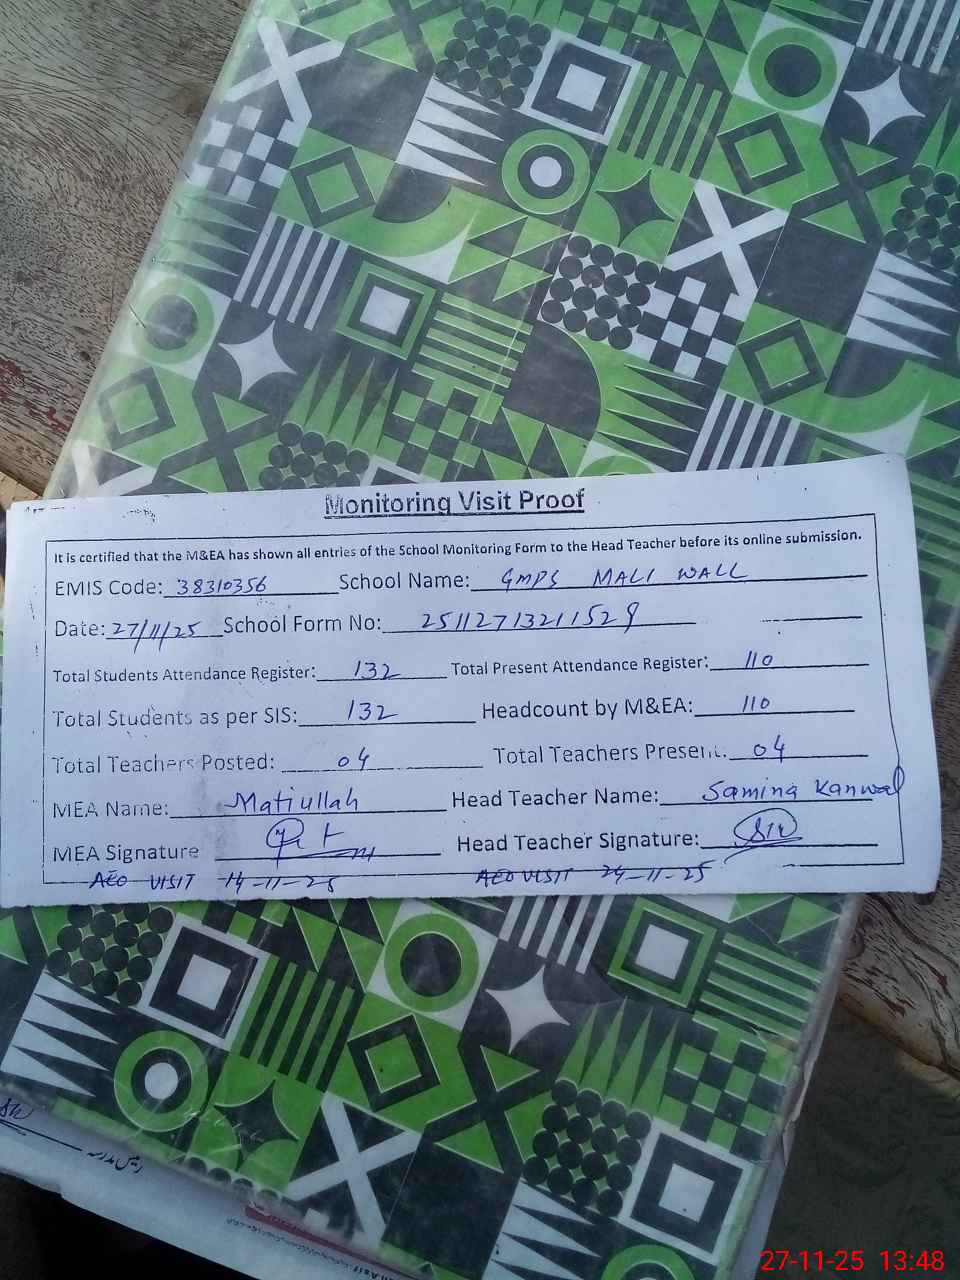 Monitoring Visit Proof
It is certified that the M&EA has shown all entries of the School Monitoring Form to the Head Teacher before its online submission.
EMIS Code: 38310356 School Name: GMPS MALI WALL
Date: 27/11/25 School Form No: 25112713211529
Total Students Attendance Register: 132 Total Present Attendance Register: 110
Total Students as per SIS: 132 Headcount by M&EA: 110
Total Teachers Posted: 04 Total Teachers Present: 04
MEA Name: Matiullah Head Teacher Name: Samina Kanwal
MEA Signature Head Teacher Signature:
AEO VISIT 14-11-25 AEO VISIT 24-11-25
رئیس مدرسہ
27-11-25 13:48